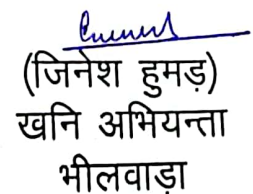 (जिनेश हुमड़)
खनि अभियन्ता
भीलवाड़ा